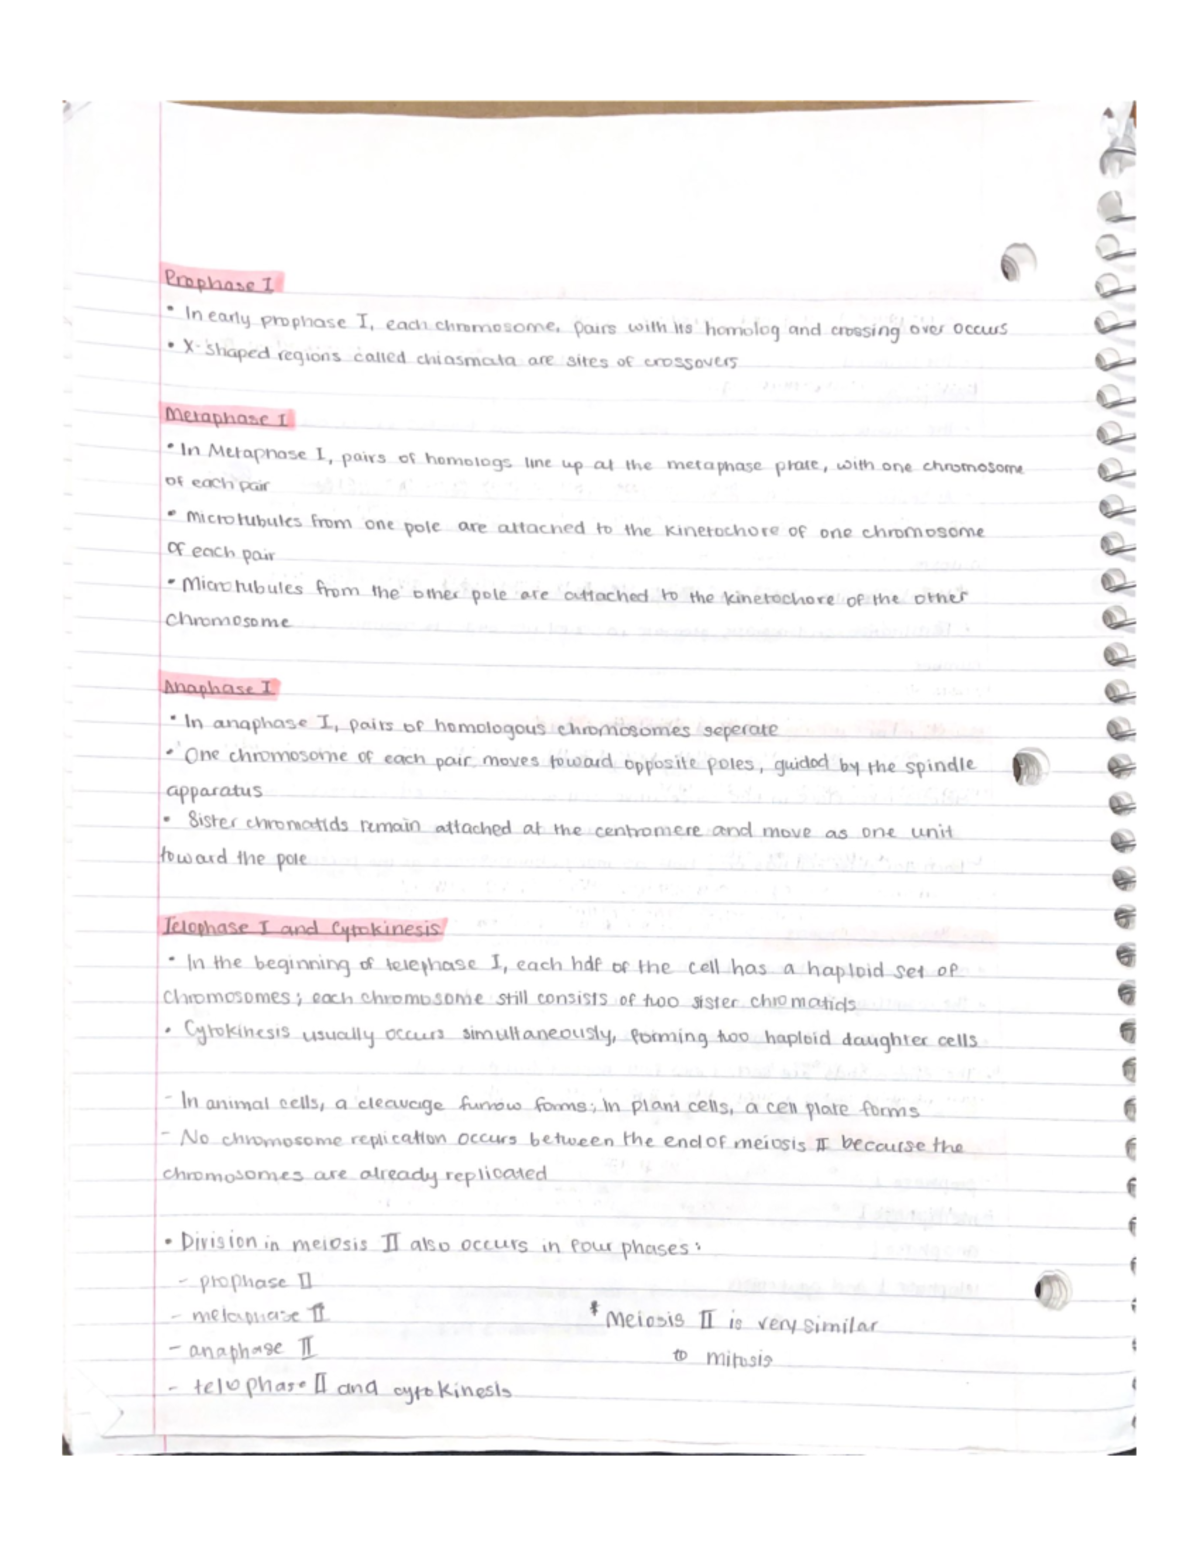 Prophase I
• In early prophase I, each chromosome, pairs with its homolog and crossing over occurs
• X-shaped regions called chiasmata are sites of crossovers
Metaphase I
• In Metaphase I, pairs of homologs line up at the metaphase plate, with one chromosome
of each pair
• Microtubules from one pole are attached to the kinetochore of one chromosome
of each pair
• Microtubules from the other pole are attached to the kinetochore of the other
chromosome
Anaphase I
• In anaphase I, pairs of homologous chromosomes seperate
• One chromosome of each pair moves toward opposite poles, guided by the spindle
apparatus
• Sister chromatids remain attached at the centromere and move as one unit
toward the pole
Telophase I and Cytokinesis
• In the beginning of telephase I, each half of the cell has a haploid set of
chromosomes; each chromosome still consists of two sister chromatids
• Cytokinesis usually occurs simultaneously, forming two haploid daughter cells
- In animal cells, a cleavage furrow forms; in plant cells, a cell plate forms
- No chromosome replication occurs between the end of meiosis II because the
chromosomes are already replicated
• Division in meiosis II also occurs in four phases:
- prophase II
- metaphase II
* Meiosis II is very similar
- anaphase II
to mitosis
- telophase II and cytokinesis